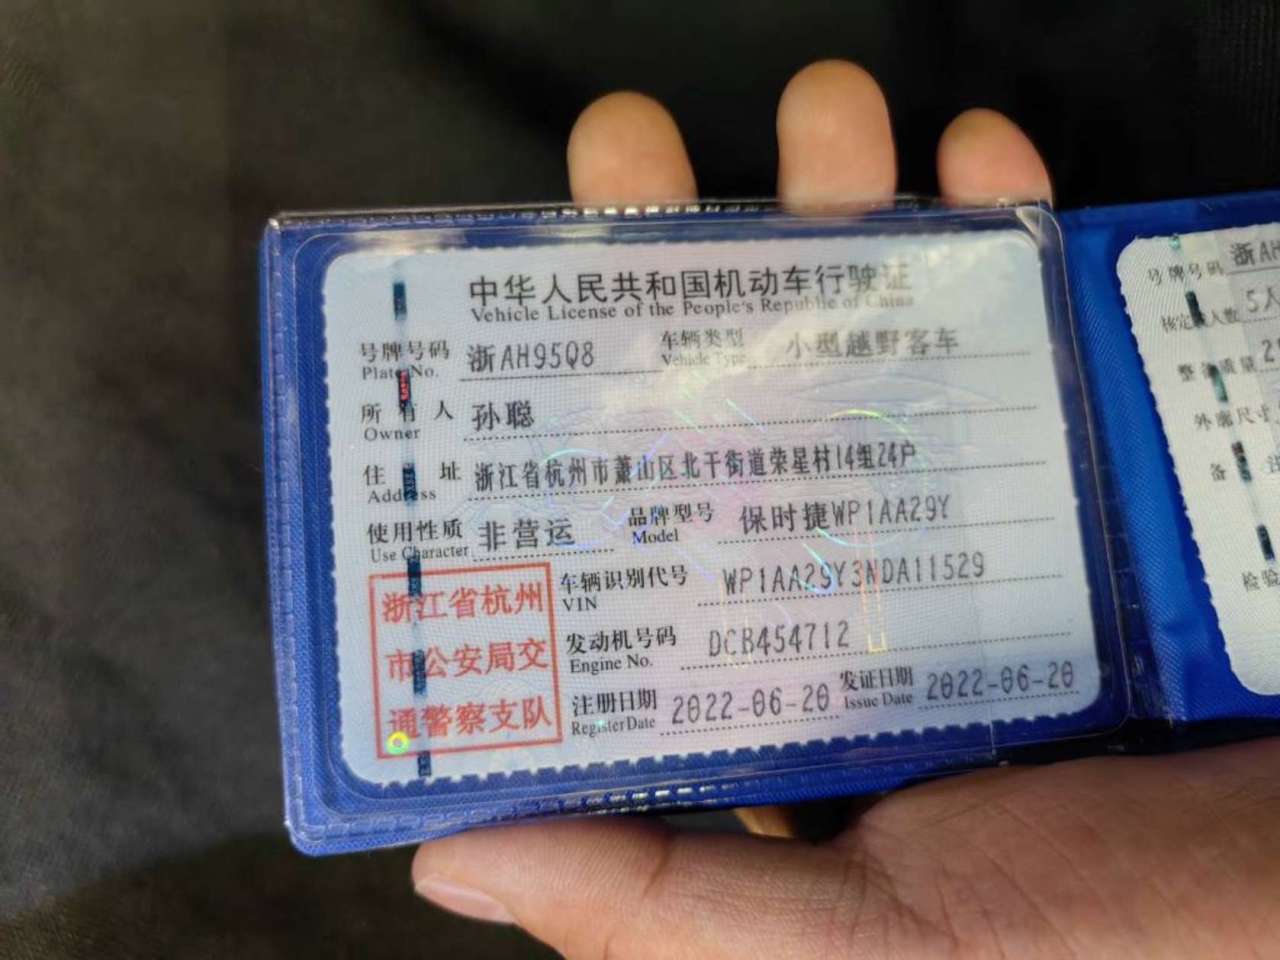 中华人民共和国机动车行驶证
Vehicle License of the People's Republic of China
号牌号码 浙AH95Q8 车辆类型 小型越野客车
Plate No. Vehicle Type
所有人 孙聪
Owner
住址 浙江省杭州市萧山区北干街道荣星村14组24户
Address
使用性质 非营运 品牌型号 保时捷WP1AA29Y
Use Character Model
浙江省杭州
市公安局交
通警察支队
车辆识别代号 WP1AA29Y3NDA11529
VIN
发动机号码 DCB454712
Engine No.
注册日期 2022-06-20 发证日期 2022-06-20
Register Date Issue Date
号牌号码 浙AH
核定载人数 5人
整备质量
外廓尺寸
备
检验